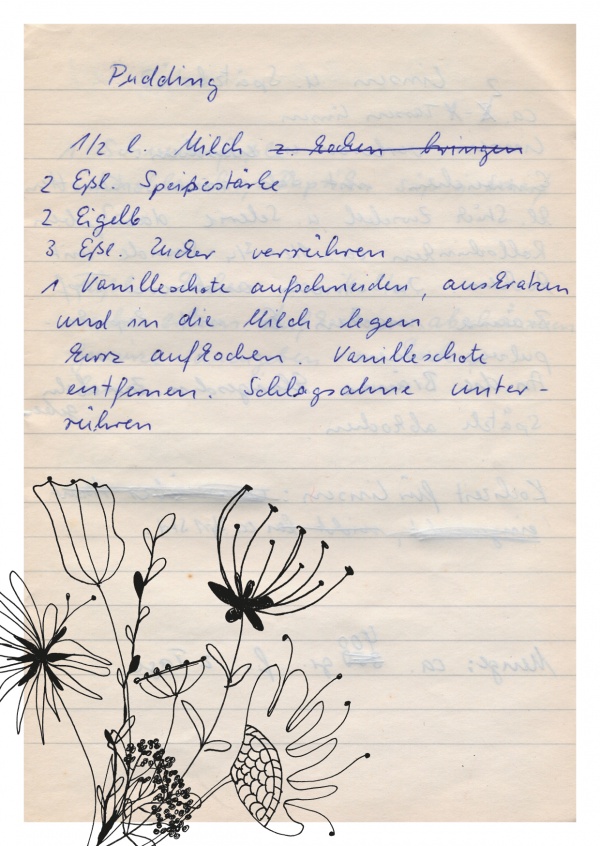 Pudding
1/2 l. Milch z. Kochen bringen
2 Eßl. Speißestärke
2 Eigelb
3 Eßl. Zucker verrühren
1 Vanilleschote aufschneiden, auskratzen
und in die Milch legen
kurz aufkochen. Vanilleschote
entfernen. Schlagsahne unter-
rühren